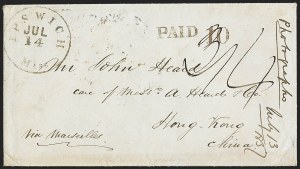 IPSWICH
JUL
14
MASS
PAID
Mr John Heard
care of Messrs A Heard & Co.
Hong-Kong
China
via Marseilles
Photographs
July 13
1857